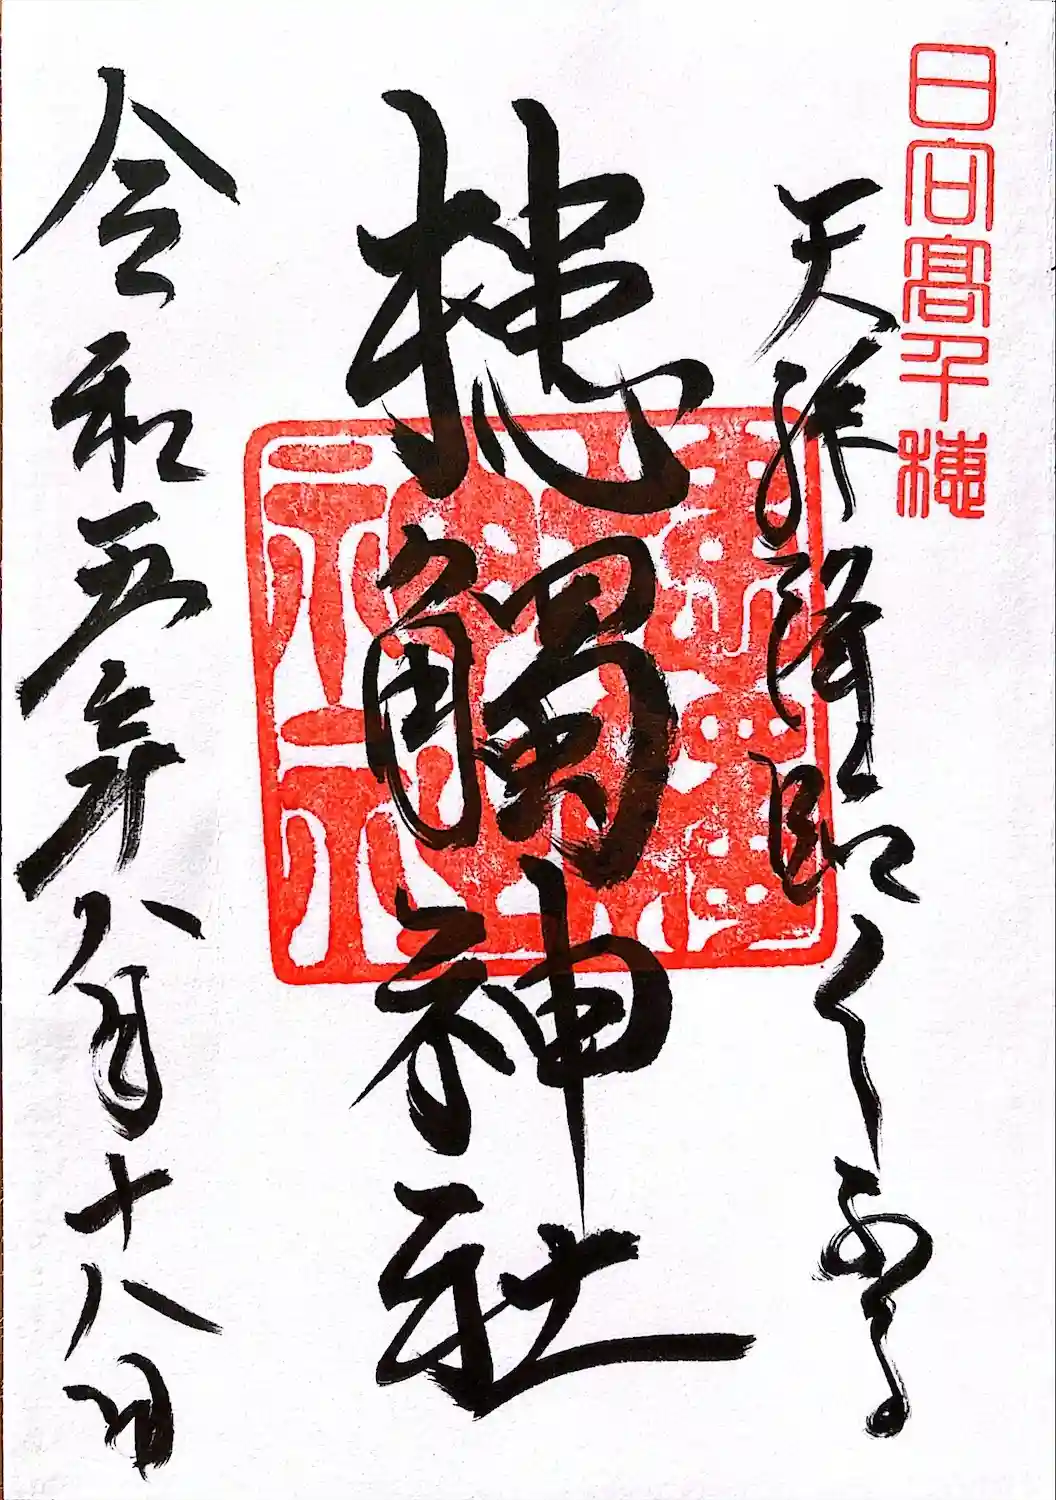 日向高千穂
天孫降臨之
槵觸神社
令和五年八月十八日